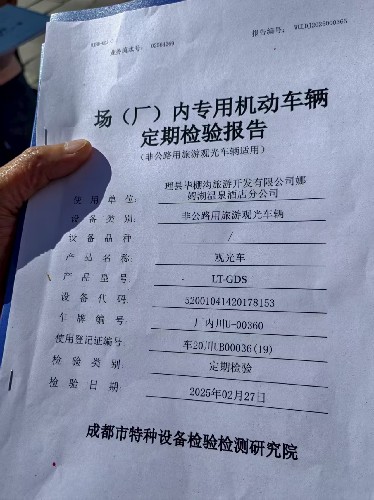 报告编号：
业务流水号：
场（厂）内专用机动车辆
定期检验报告
（非公路用旅游观光车辆适用）
使用单位： 理县毕棚沟旅游开发有限公司娜
姆湖温泉酒店分公司
设备类别： 非公路用旅游观光车辆
设备品种： /
产品名称： 观光车
产品型号： LT-GDS
设备代码： 52001041420178153
车牌编号： 厂内川U-00360
使用登记证编号： 车20川UB00036(19)
检验类别： 定期检验
检验日期： 2025年02月27日
成都市特种设备检验检测研究院